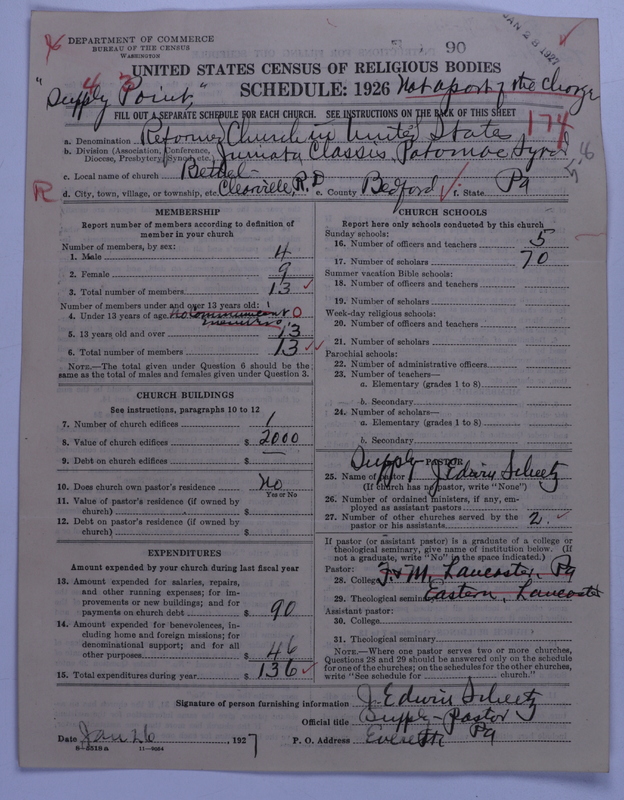 JAN 28 1927
DEPARTMENT OF COMMERCE
BUREAU OF THE CENSUS
WASHINGTON
90
UNITED STATES CENSUS OF RELIGIOUS BODIES
43
"Supply Point"
SCHEDULE: 1926
Not a part of the Charge
FILL OUT A SEPARATE SCHEDULE FOR EACH CHURCH. SEE INSTRUCTIONS ON THE BACK OF THIS SHEET
174
a. Denomination Reformed Church in United States
b. Division (Association, Conference, Diocese, Presbytery, Synod, etc.) Juniata Classis, Potomac Synod
c. Local name of church Bethel
R
d. City, town, village, or township, etc. Clearville, R.D e. County Bedford f. State Pa
MEMBERSHIP
Report number of members according to definition of
member in your church
Number of members, by sex:
1. Male 4
2. Female 9
3. Total number of members 13
Number of members under and over 13 years old:
4. Under 13 years of age no Communicant members 0
5. 13 years old and over 13
6. Total number of members 13
NOTE.—The total given under Question 6 should be the
same as the total of males and females given under Question 3.
CHURCH BUILDINGS
See instructions, paragraphs 10 to 12
7. Number of church edifices 1
8. Value of church edifices $ 2000
9. Debt on church edifices $ —
10. Does church own pastor's residence No
Yes or No
11. Value of pastor's residence (if owned by
church) $
12. Debt on pastor's residence (if owned by
church) $
EXPENDITURES
Amount expended by your church during last fiscal year
13. Amount expended for salaries, repairs,
and other running expenses; for im-
provements or new buildings; and for
payments on church debt $ 90
14. Amount expended for benevolences, in-
cluding home and foreign missions; for
denominational support; and for all
other purposes $ 46
15. Total expenditures during year $ 136
CHURCH SCHOOLS
Report here only schools conducted by this church
Sunday schools:
16. Number of officers and teachers 5
17. Number of scholars 70
Summer vacation Bible schools:
18. Number of officers and teachers
19. Number of scholars
Week-day religious schools:
20. Number of officers and teachers
21. Number of scholars
Parochial schools:
22. Number of administrative officers
23. Number of teachers—
a. Elementary (grades 1 to 8)
b. Secondary
24. Number of scholars—
a. Elementary (grades 1 to 8)
b. Secondary
Supply PASTOR
25. Name of pastor J. Edwin Sheetz
(If church has no pastor, write "None")
26. Number of ordained ministers, if any, em-
ployed as assistant pastors
27. Number of other churches served by the
pastor or his assistants 2.
If pastor (or assistant pastor) is a graduate of a college or
theological seminary, give name of institution below. (If
not a graduate, write "No" in the space indicated.)
Pastor:
28. College F & M, Lancaster, Pa
29. Theological seminary Eastern, Lancaster
Assistant pastor:
30. College
31. Theological seminary
NOTE.—Where one pastor serves two or more churches,
Questions 28 and 29 should be answered only on the schedule
for one of the churches; on the schedules for the other churches,
write "See schedule for church."
Signature of person furnishing information J. Edwin Sheetz
Official title Supply-Pastor
Date Jan 26, 1927 P. O. Address Everett Pa
8—5313a 11—9064